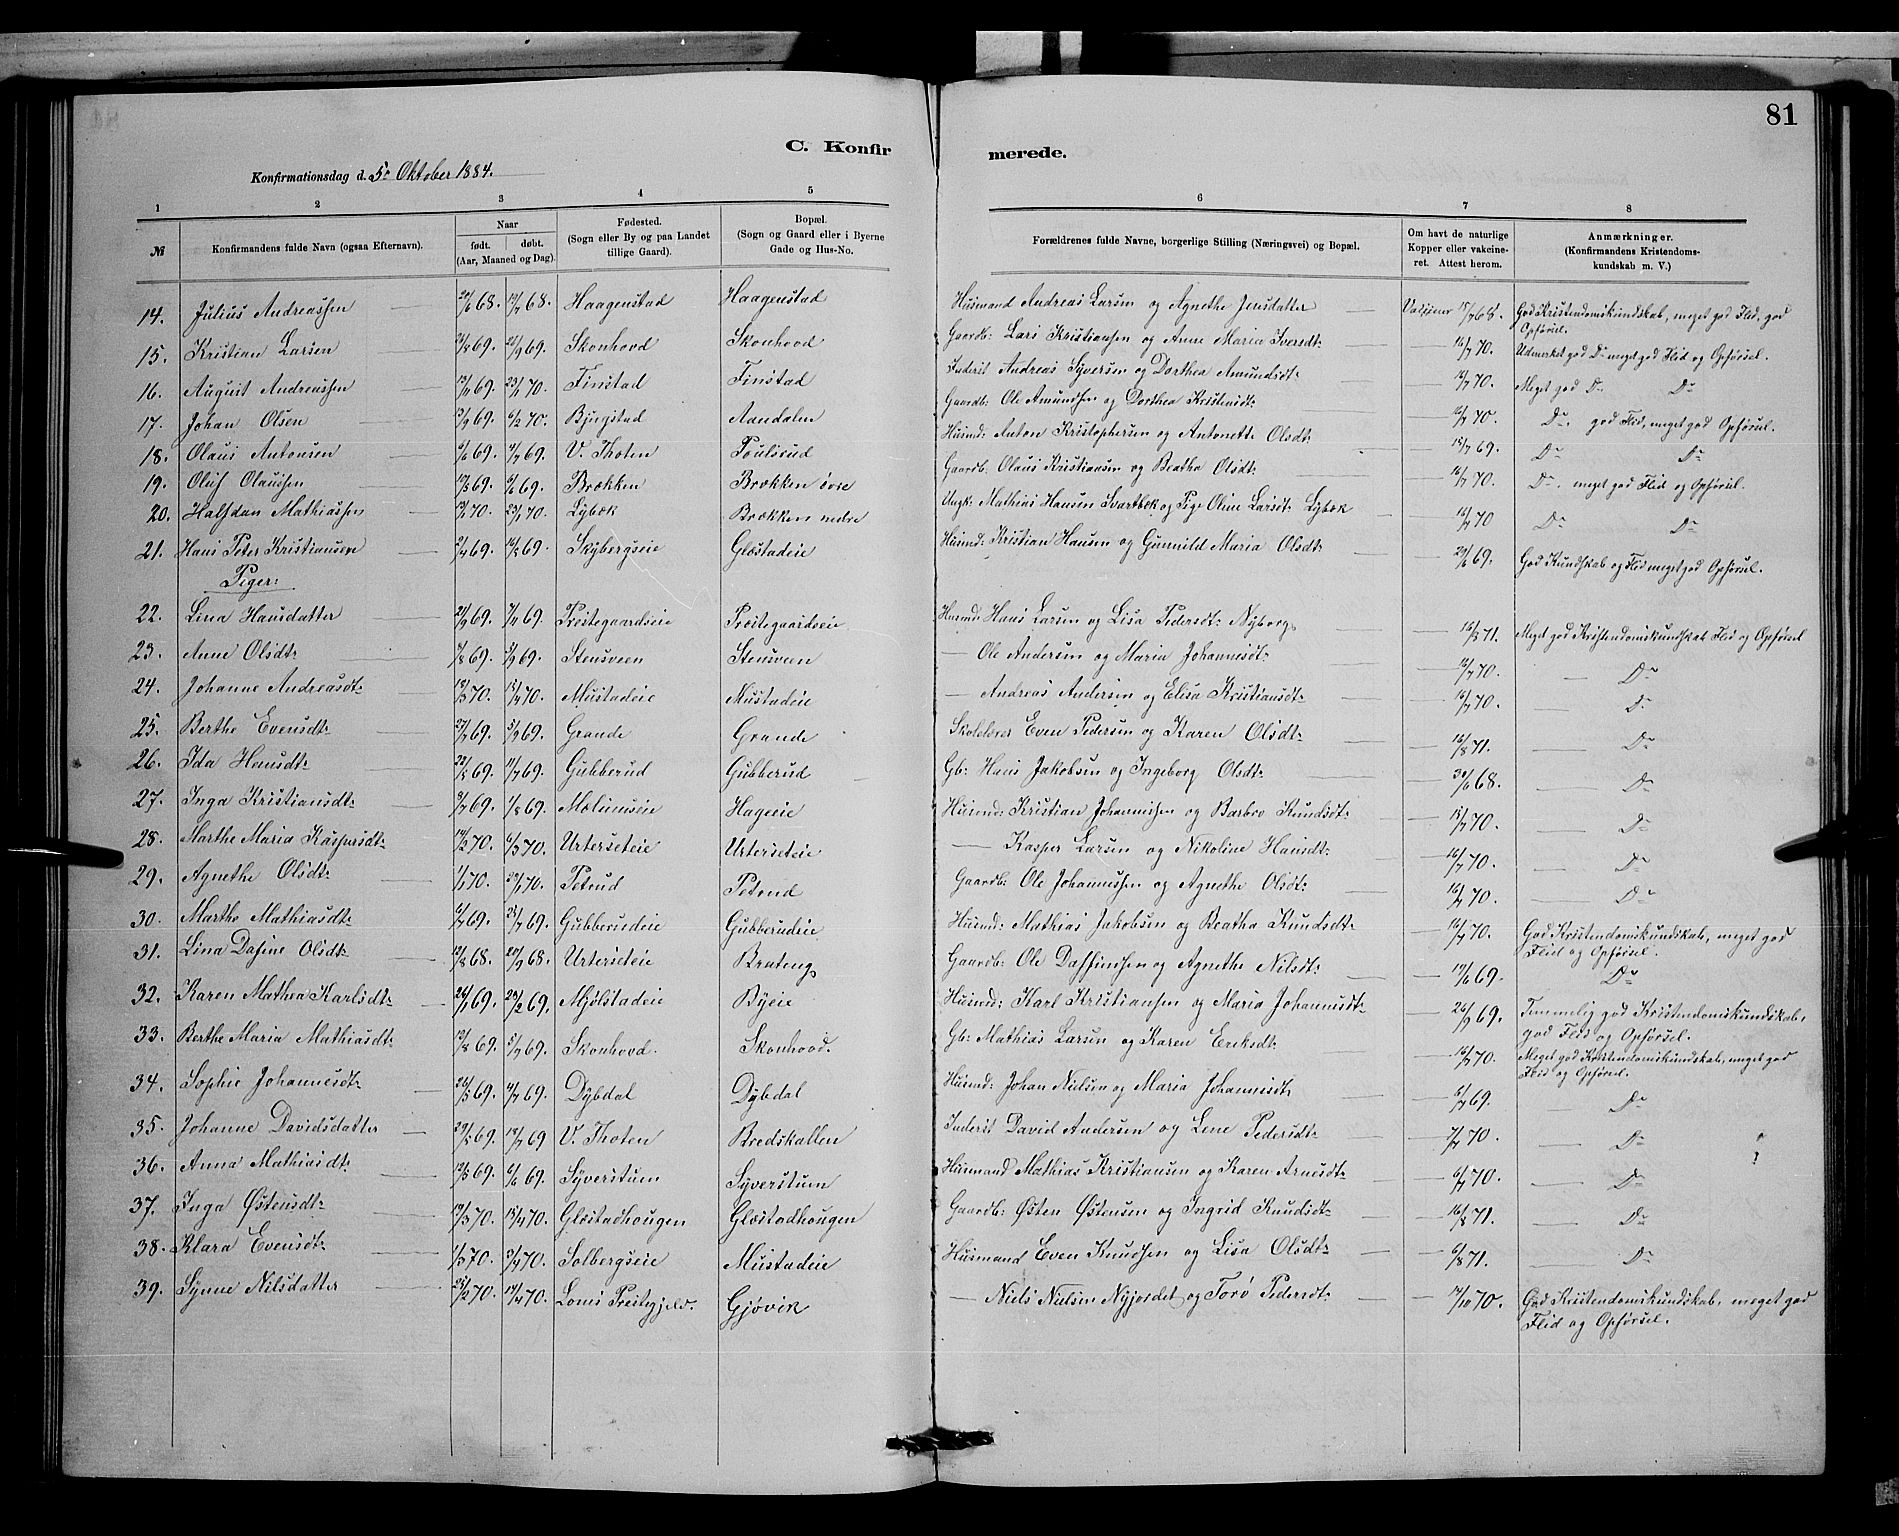 81
C. Konfirmerede.
Konfirmationsdag d. 5 Oktober 1884.
1 2 3 4 5 6 7 8
№ Konfirmandens fulde Navn (ogsaa Efternavn). Naar født. døbt. (Aar, Maaned og Dag). Fødested. (Sogn eller By og paa Landet tillige Gaard). Bopæl. (Sogn og Gaard eller i Byerne Gade og Hus-No. Forældrenes fulde Navne, borgerlige Stilling (Næringsvei) og Bopæl. Om havt de naturlige Kopper eller vakcineret. Attest herom. Anmærkninger. (Konfirmandens Kristendomskundskab m. V.)
14. Julius Andreassen 68. 68. Haagenstad Haagenstad Husmand Andreas Larsen og Agnethe Jensdatter 15/7 68. God Kristendomskundskab, meget god Flid, god Opførsel.
15. Kristian Larsen 69. 69. Skonhovd Skonhovd Gaardb: Lars Kristiansen og Anne Maria Iversdt: 16/7 70. Udmerket god Do meget god Flid og Opførsel.
16. August Andreassen 69. 70. Finstad Finstad Inderst Andreas Syversen og Dorthea Amundsdt: 16/7 70. Meget god Do Do
17. Johan Olsen 69. 6/2 70. Bjugstad Aandalen Gaardb: Ole Amundsen og Dorthea Kristensdt: 16/7 70. Do. god Flid, meget god Opførsel.
18. Olaus Antonsen 69. 4/7 69. V. Thoten Poulsrud Husmd: Anton Kristophersen og Antonette Olsdt: 15/7 69. Do Do
19. Oluf Olaussen 69. 6/6 69. Brækken Brækken øvre Gaardb. Olaus Kristiansen og Beatha Olsdt: 16/7 70. Do. meget god Flid og Opførsel.
20. Halfdan Mathiassen 70. 70. Lybæk Brækken nedre Ungk: Mathias Hansen Svartbæk og Pige Oline Larsdt: Lybæk 16/7 70 Do Do
21. Hans Peter Kristiansen 69. 69. Skybergseie Glæstadeie Husmd: Kristian Hansen og Gunnild Maria Olsdt: 69. God Kundskab og Flid meget god Opførsel.
Piger:
22. Lina Hansdatter 69. 69. Prestegaardseie Præstegaardseie Husmd: Hans Larsen og Lisa Pedersdt: Nyborg 71. Meget god Kristendomskundskab Flid og Opførsel
23. Anne Olsdt: 69. 69. Stensveen Stensveen — Ole Andersen og Maria Johannesdt: 16/7 70. Do
24. Johanne Andreasdt: 70. 70. Mustadeie Mustadeie — Andreas Andersen og Elisa Kristiansdt: 16/7 70. Do
25. Berthe Evensdt: 69. 69. Grande Grande Skolelærer Even Pedersen og Karen Olsdt: 16/8 71. Do
26. Ida Hansdt: 69. 69. Gubberud Gubberud Gb: Hans Jakobsen og Ingeborg Olsdt: 68. Do
27. Inga Kristiansdt: 69. 1/8 69. Mælumseie Hageeie Husmd: Kristian Johannessen og Barbro Knudsdt: 15/7 70. Do
28. Marthe Maria Kaspersdt: 70. 6/3 70. Urterseteie Urterseteie — Kasper Larsen og Nikoline Hansdt: 16/7 70. Do
29. Agnethe Olsdt: 70. 70. Petrud Petrud Gaardb: Ole Johannessen og Agnethe Olsdt: 16/7 70. Do
30. Marthe Mathiasdt: 69. 69. Gubberudeie Gubberudeie Husmd: Mathias Jakobsen og Beatha Knudsdt: 16/7 70. God Kristendomskundskab, meget god Flid og Opførsel.
31. Lina Dafine Olsdt: 68. 68. Urterseteie Brateng Gaardb: Ole Daffinsen og Agnethe Nilsdt: 69. Do
32. Karen Mathea Karlsdt: 69. 69. Mjølstadeie Byeie Husmd: Karl Kristiansen og Maria Johannesdt: 69. Temmelig god Kristendomskundskab, god Flid og Opførsel.
33. Berthe Maria Mathiasdt: 69. 69. Skonhovd. Skonhovd. Gb: Mathias Larsen og Karen Eriksdt: 16/7 70. Meget god Kristendomskundskab, meget god Flid og Opførsel.
34. Sophie Johannesdt: 69. 4/7 69. Dybdal Dybdal Husmd: Johan Nielsen og Maria Johannesdt: 69. Do
35. Johanne Davidsdatter 69. 69 V. Thoten Bredskallen Inderst David Andersen og Lene Pedersdt: 70. Do
36. Anna Mathiasdt: 69. 6/6 69. Syverstum Syverstum Husmand Mathias Kristiansen og Karen Arnesdt: 70. Do
37. Inga Østensdt: 70. 15/4 70. Glæstadhougen Glæstadhougen Gaardb: Østen Østensen og Ingrid Knudsdt: 16/8 71. Do
38. Klara Evensdt: 70. 70. Solbergseie Mustadeie Husmand Even Knudsen og Lisa Olsdt: 6/8 71. Do
39. Synne Nilsdatter 70. 70. Loms Prestegjeld. Gjøvik — Niels Nielsen Nyjordet og Torø Pedersdt: 7/10 70. God Kristendomskundskab, meget god Flid og Opførsel.